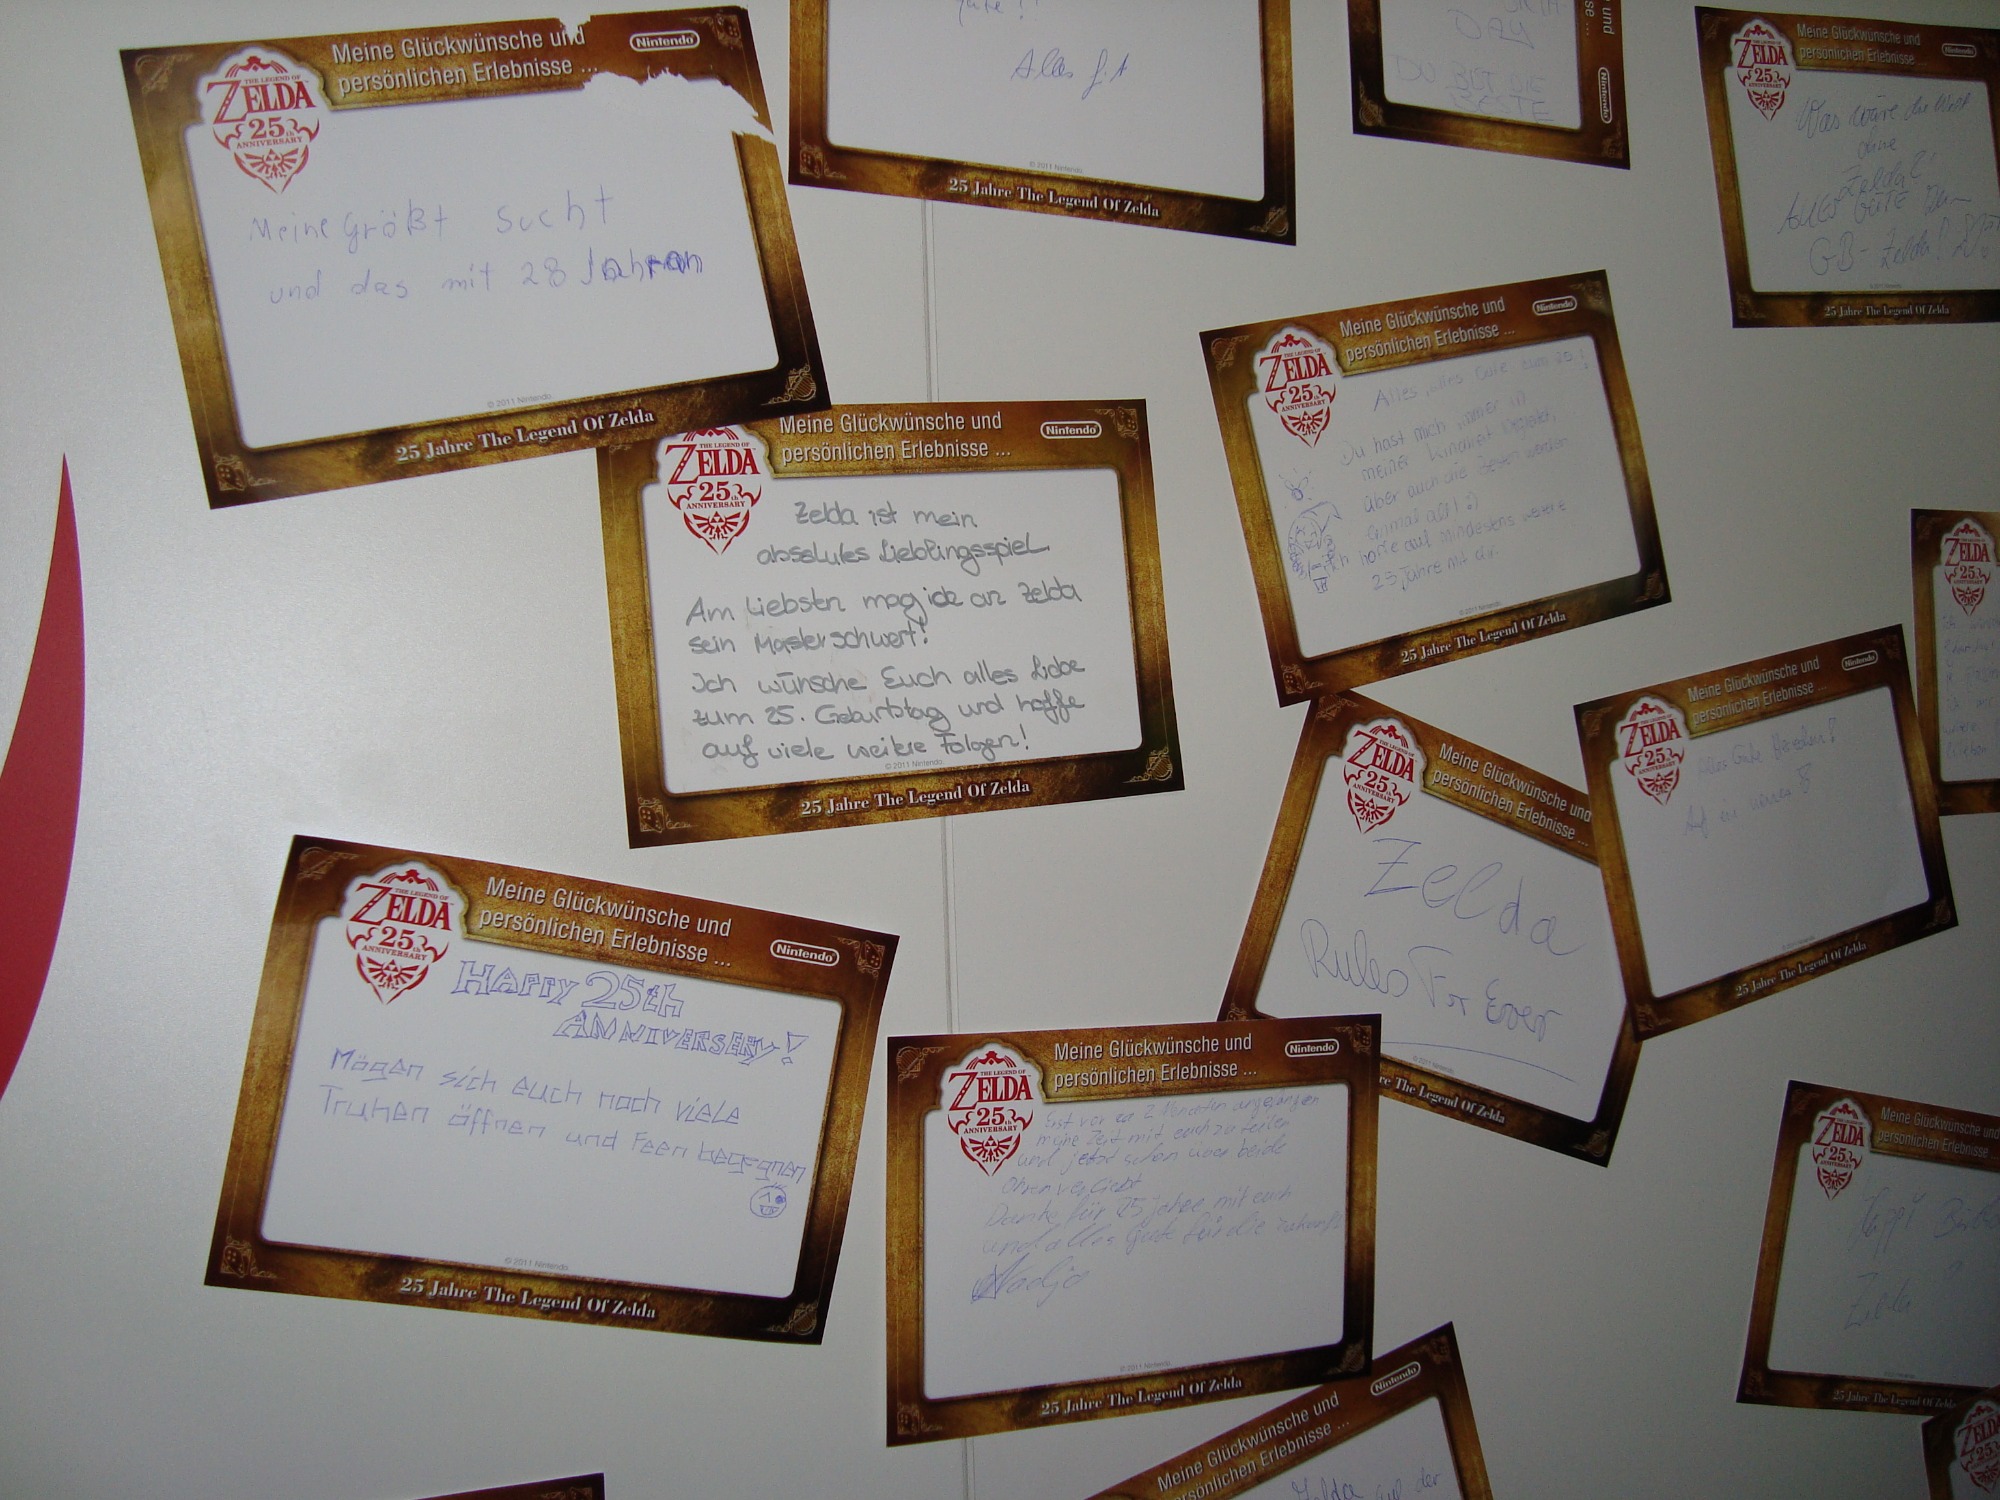 Meine Glückwünsche und
persönlichen Erlebnisse ...
Nintendo
THE LEGEND OF
ZELDA
25th
ANNIVERSARY
Meine größt sucht
und das mit 28 Jahren
© 2011 Nintendo.
25 Jahre The Legend Of Zelda
© 2011 Nintendo.
25 Jahre The Legend Of Zelda
DAY
DU BIST DIE
BESTE
und
Nintendo
Meine Glückwünsche und
persönlichen Erlebnisse ...
Nintendo
ZELDA
25th
ANNIVERSARY
Was wäre die Welt
ohne
Zelda?
Alles Gute
GB- Zelda!
25 Jahre The Legend Of Zelda
Meine Glückwünsche und
persönlichen Erlebnisse ...
Nintendo
THE LEGEND OF
ZELDA
25th
ANNIVERSARY
Zelda ist mein
absolutes Lieblingsspiel
Am Liebsten mag ich an Zelda
sein Masterschwert!
Ich wünsche Euch alles Liebe
zum 25. Geburtstag und hoffe
auf viele weitere Folgen!
© 2011 Nintendo.
25 Jahre The Legend Of Zelda
Meine Glückwünsche und
persönlichen Erlebnisse ...
Nintendo
THE LEGEND OF
ZELDA
25th
ANNIVERSARY
Alles, alles Gute zum 25!
Du hast mich immer in
meiner Kindheit begleitet,
aber auch die Besten werden
einmal alt! :)
Ich hoffe auf mindestens weitere
25 Jahre mit dir
© 2011 Nintendo.
25 Jahre The Legend Of Zelda
Meine Glückwünsche und
persönlichen Erlebnisse ...
Nintendo
ZELDA
25th
ANNIVERSARY
Alles Gute
Auf ein neues
25 Jahre The Legend Of Zelda
ZELDA
25th
Meine Glückwünsche und
persönlichen Erlebnisse ...
THE LEGEND OF
ZELDA
25th
ANNIVERSARY
Zelda
Rules For Ever
© 2011 Nintendo.
re The Legend Of Zelda
Meine Glückwünsche und
persönlichen Erlebnisse ...
Nintendo
THE LEGEND OF
ZELDA
25th
ANNIVERSARY
HAPPY 25th
ANNIVERSERY!
Mögen sich euch noch viele
Truhen öffnen und Feen begegnen
© 2011 Nintendo.
25 Jahre The Legend Of Zelda
Meine Glückwünsche und
persönlichen Erlebnisse ...
Nintendo
THE LEGEND OF
ZELDA
25th
ANNIVERSARY
Erst vor ca 2 Monaten angefangen
meine Zeit mit euch zu teilen
und jetzt schon über beide
Ohren verliebt
Danke für 25 Jahre mit euch
und alles Gute für die Zukunft
Nadja
© 2011 Nintendo.
25 Jahre The Legend Of Zelda
Meine Glückwünsche und
persönlichen Erlebnisse
ZELDA
25th
ANNIVERSARY
Zelda
25 Jahre The Legend Of Zelda
Meine Glückwünsche und
persönlichen Erlebnisse ...
Nintendo
Zelda auf der
ZELDA
25